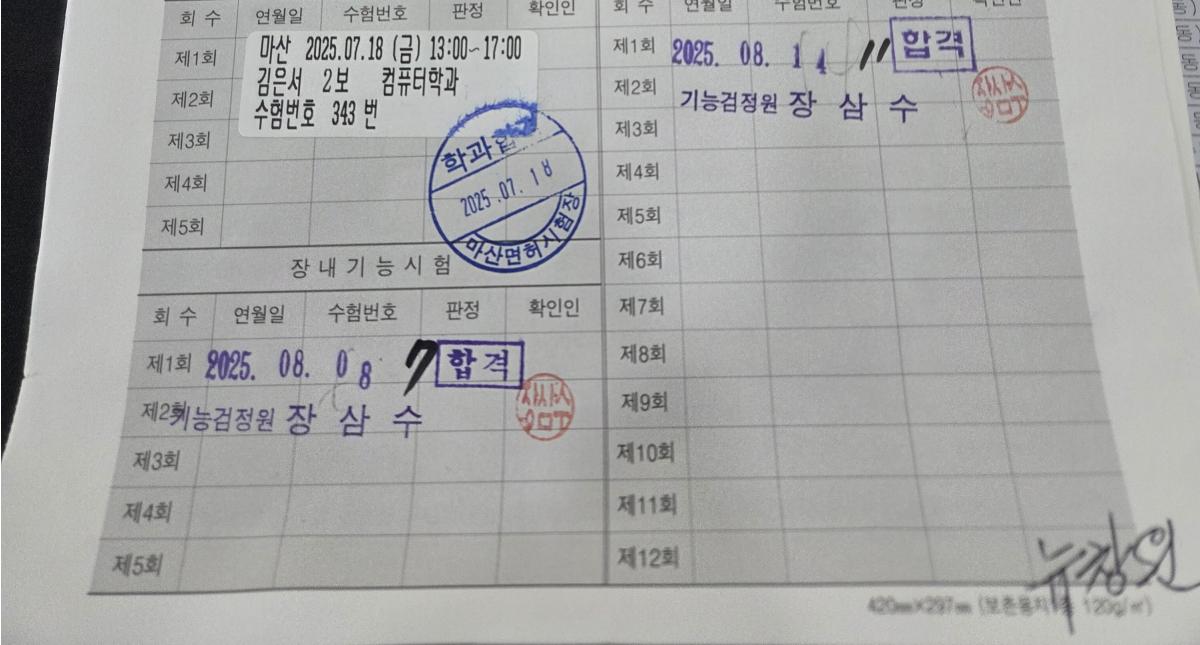 회 수 연월일 수험번호 판정 확인인
제1회
마산 2025.07.18 (금) 13:00~17:00
김은서 2보 컴퓨터학과
수험번호 343 번
제2회
제3회
제4회
제5회
학과합격
2025.07.18
마산면허시험장
장내기능시험
회 수 연월일 수험번호 판정 확인인
제1회 2025. 08. 08 7 합격
제2회 기능검정원 장삼수
장삼수
제3회
제4회
제5회
회 수 연월일 수험번호 판정 확인인
제1회 2025. 08. 14 11 합격
제2회 기능검정원 장삼수
장삼수
제3회
제4회
제5회
제6회
제7회
제8회
제9회
제10회
제11회
제12회
420㎜×297㎜ (보존용지 120g/㎡)